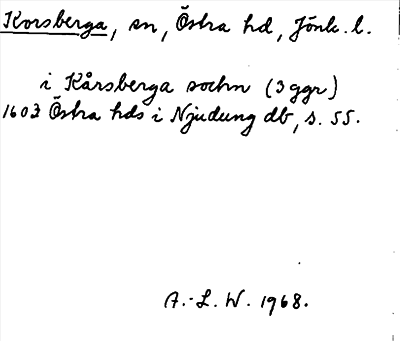 Korsberga, sn, Östra hd, Jönk. l.
i Kårsberga sochn (3 ggr)
1602 Östra hds i Njudung db, s. 55.
A.-L. W. 1968.